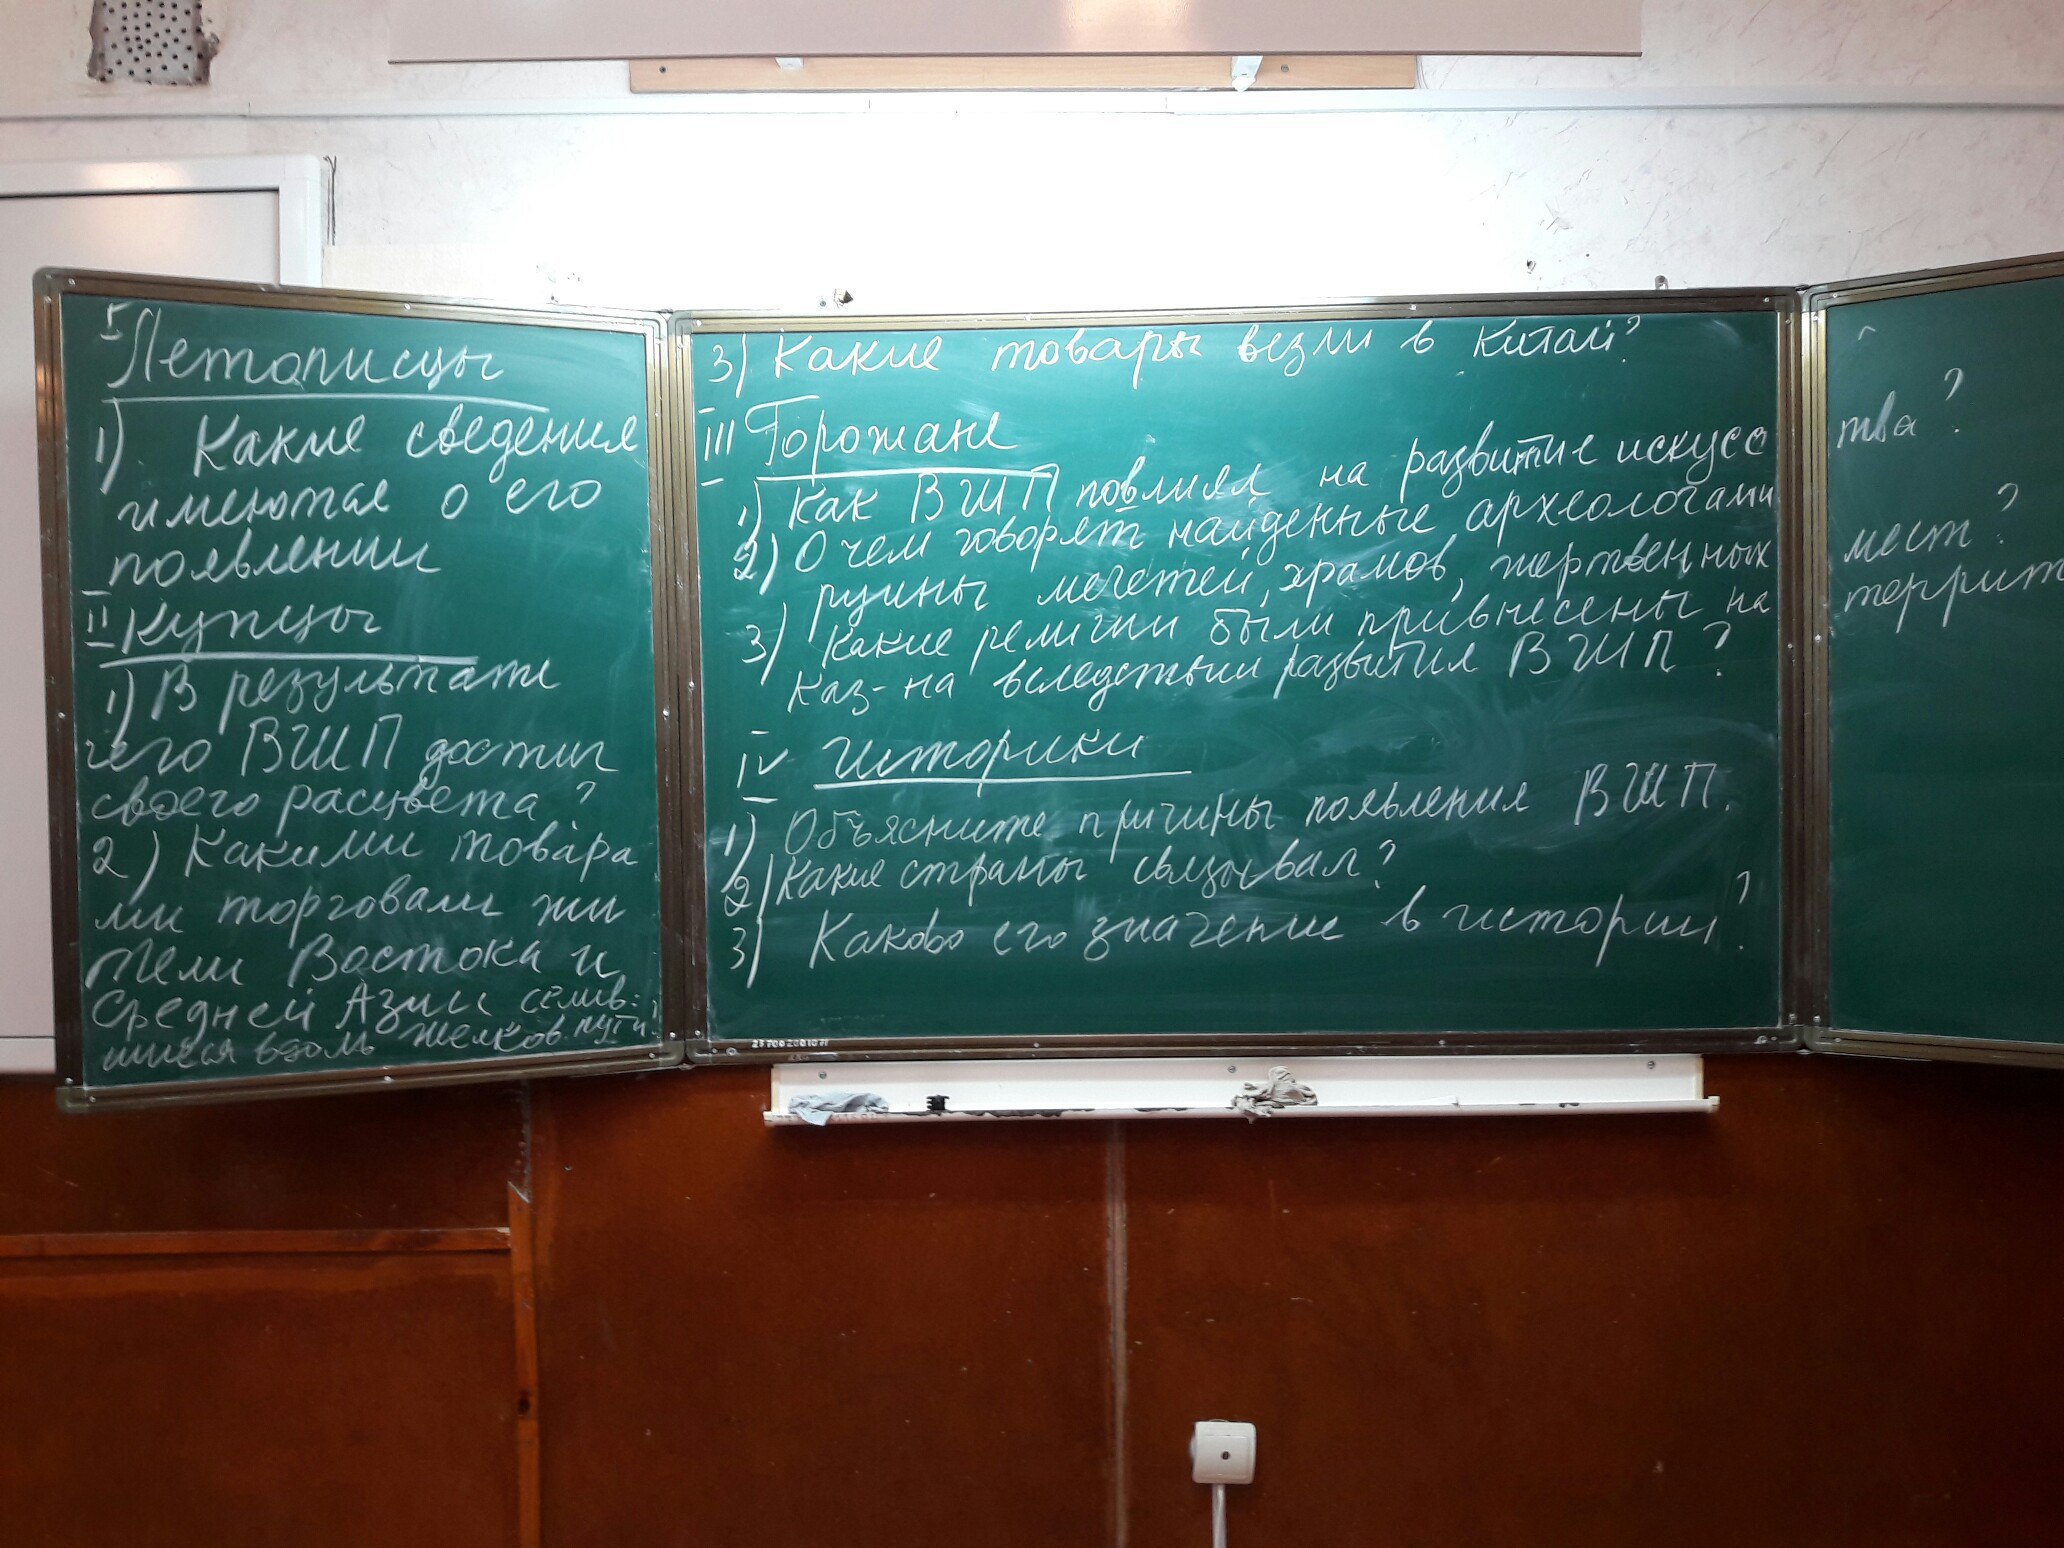 I
Летописцы
1) Какие сведения
имеются о его
появлении
II Купцы
1) В результате
чего ВШП достиг
своего расцвета?
2) Какими товара
ми торговали жи
тели Востока и
Средней Азии селив-
шиеся вдоль шелков. пути
3) Какие товары везли в Китай?
III Горожане
1) Как ВШП повлиял на развитие искусс тва?
2) О чем говорят найденные археологами
руины мечетей, храмов, жертвенных мест?
3) Какие религии были привнесены на террит
Каз-на вследствии развития ВШП?
IV Историки
1) Объясните причины появления ВШП.
2) Какие страны связывал?
3) Каково его значение в истории?